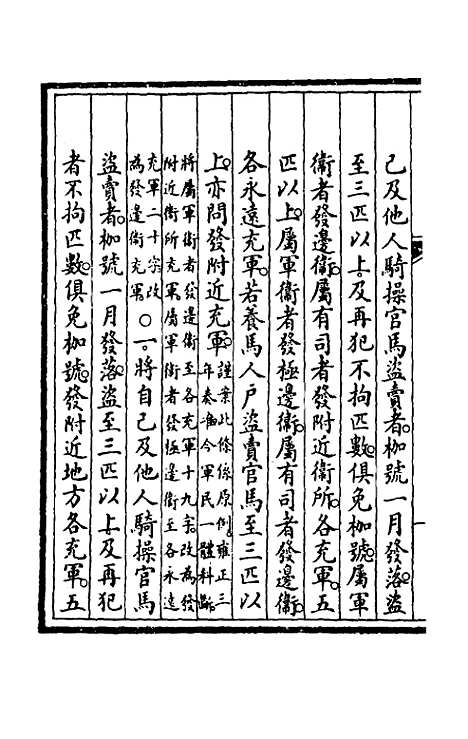 己及他人騎操官馬盜賣者枷號一月發落盜
至三匹以上及再犯不拘匹數俱免枷號屬軍
衞者發邊衞屬有司者發附近衞所各充軍五
匹以上屬軍衞者發極邊衞屬有司者發邊衞
各永遠充軍若養馬人户盜賣官馬至三匹以
上亦問發附近充軍
謹案此條係原例雍正三
年奏准今軍民一體科斷
將屬軍衞者發邊衞至各充軍十九字改為發
附近衞所充軍屬軍衞者發極邊衞至各永遠
充軍二十字改
為發邊衞充軍
○一將自己及他人騎操官馬
盜賣者枷號一月發落盜至三匹以上及再犯
者不拘匹數俱免枷號發附近地方各充軍五